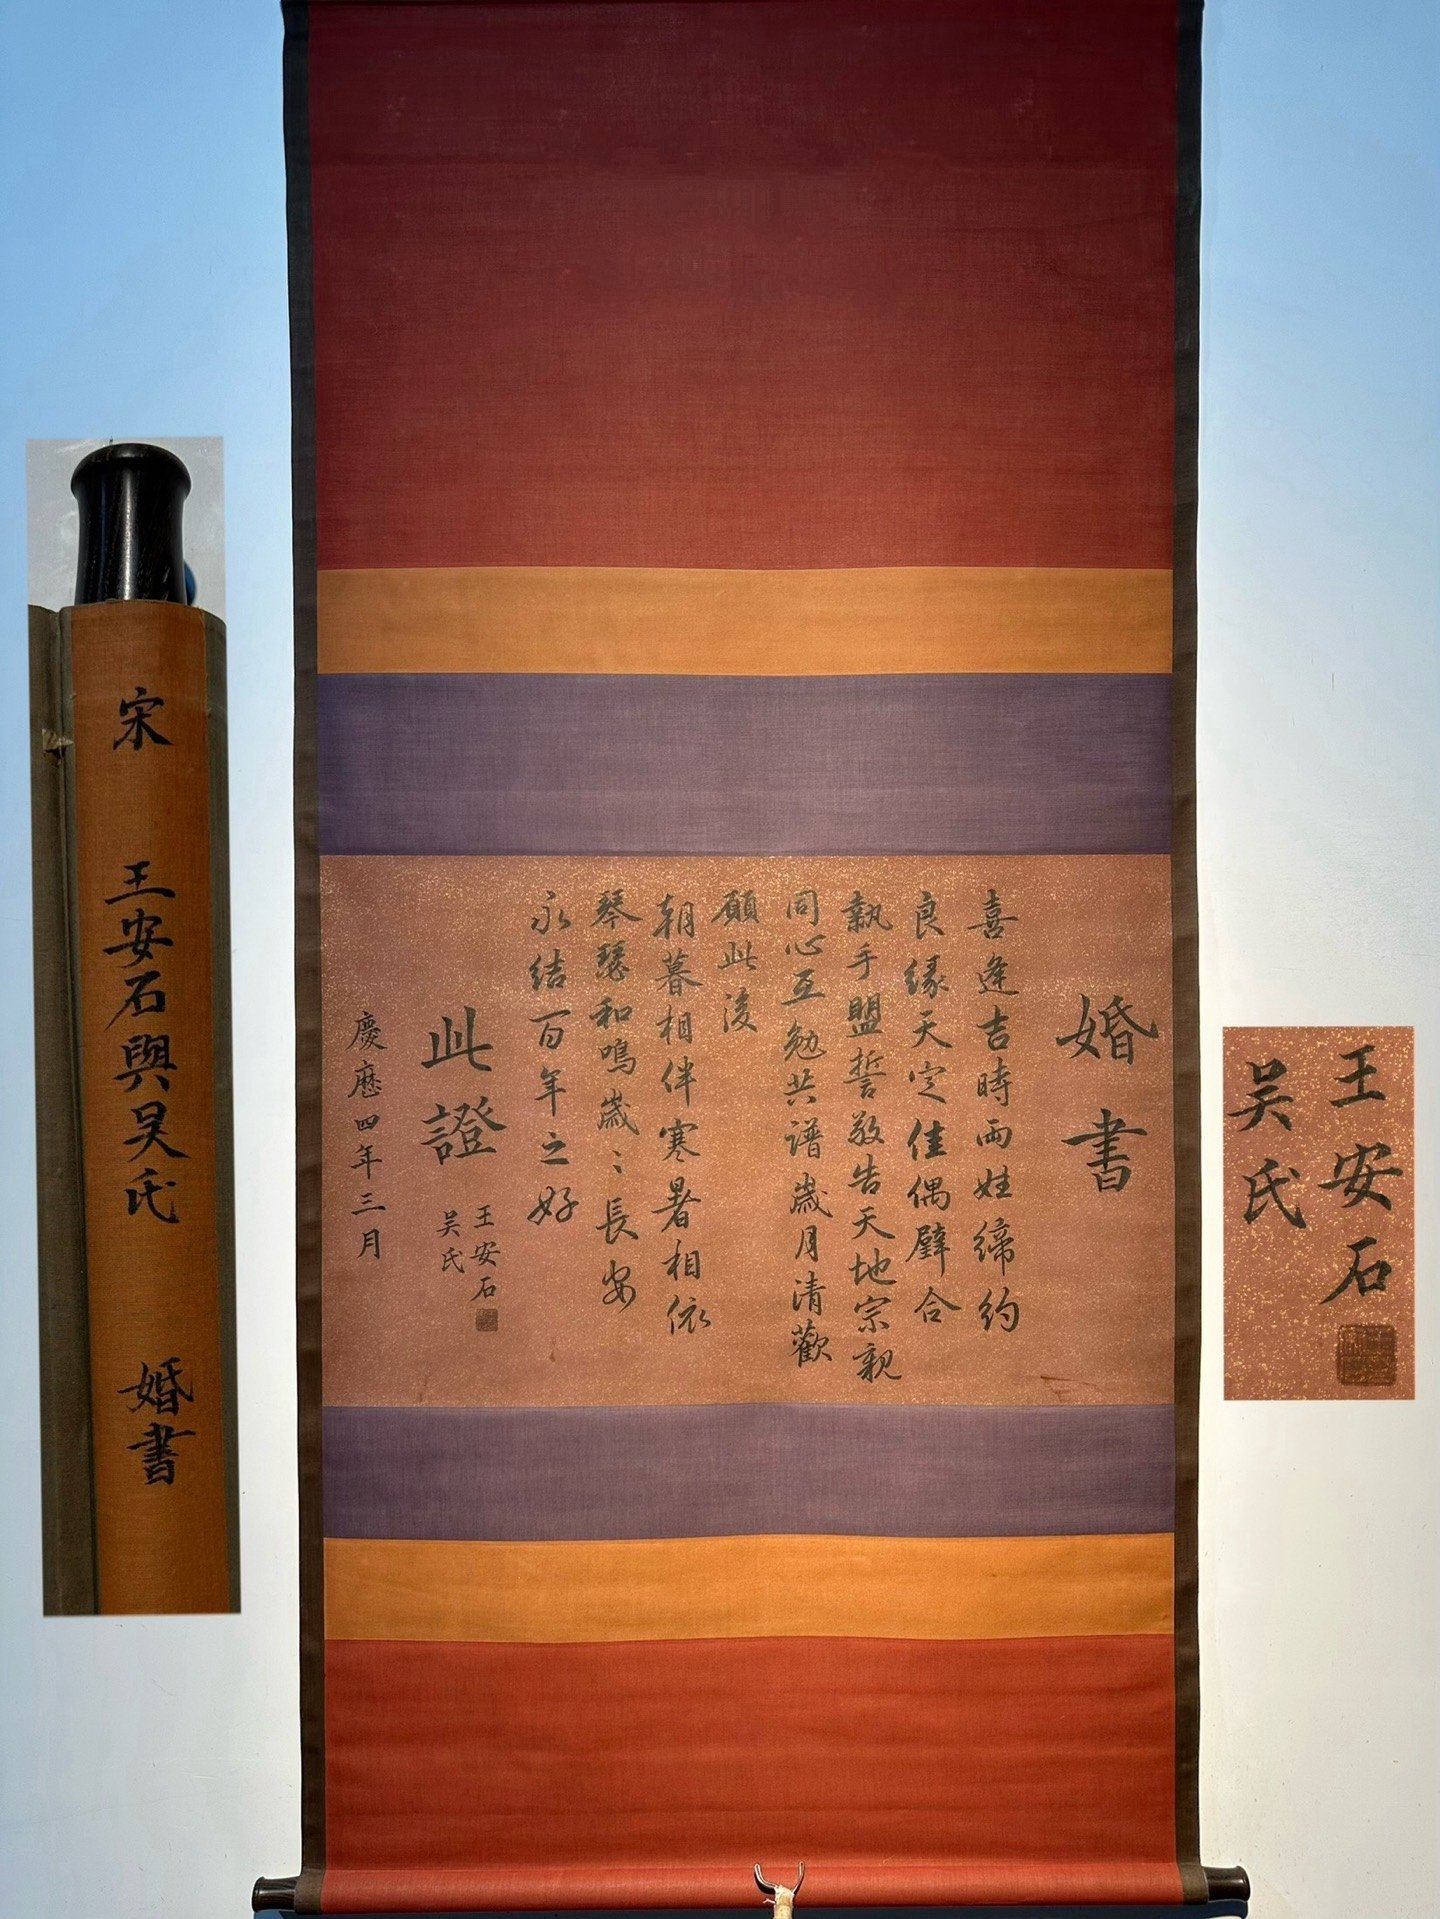 婚書
喜逢吉時兩姓締約
良緣天定佳偶璧合
執手盟誓敬告天地宗親
同心互勉共譜歲月清歡
願此後
朝暮相伴寒暑相依
琴瑟和鳴歲〻長安
永結百年之好
此證
王安石
吴氏
慶曆四年三月
宋 王安石與吴氏 婚書
王安石
吴氏